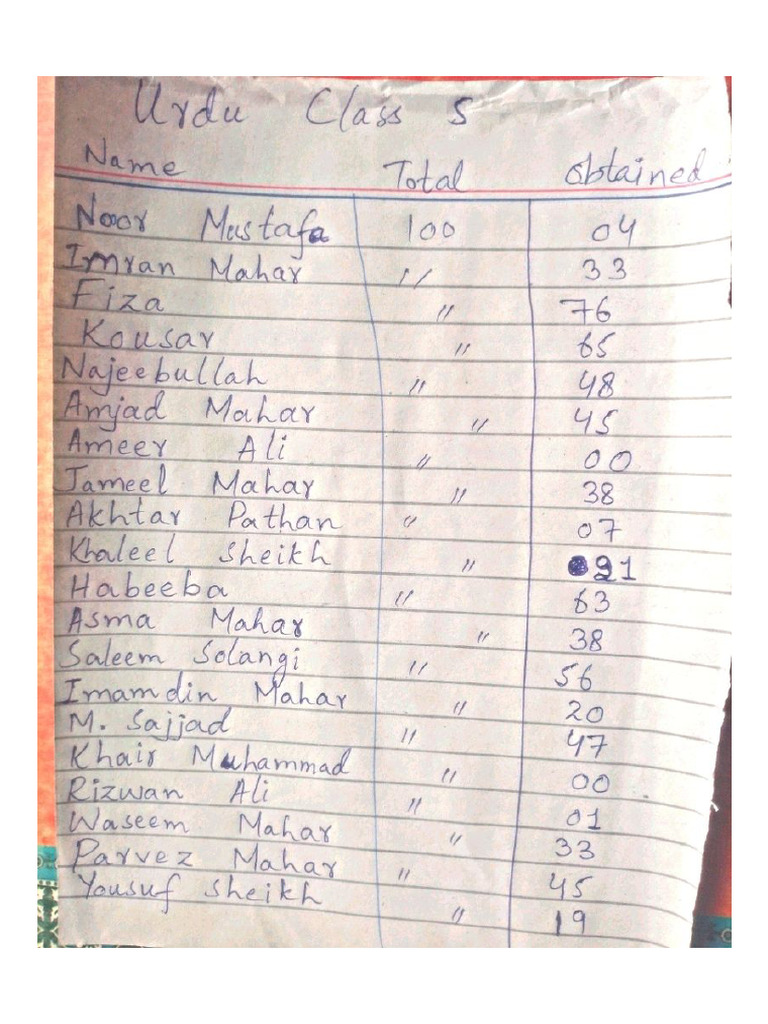 Urdu Class 5
Name Total Obtained
Noor Mustafa 100 04
Imran Mahar " 33
Fiza " 76
Kousar " 65
Najeebullah " 48
Amjad Mahar " 45
Ameer Ali " 00
Jameel Mahar " 38
Akhtar Pathan " 07
Khaleel Sheikh " 91
Habeeba " 63
Asma Mahar " 38
Saleem Solangi " 56
Imamdin Mahar " 20
M. Sajjad " 47
Khair Muhammad " 00
Rizwan Ali " 01
Waseem Mahar " 33
Parvez Mahar " 45
Yousuf Sheikh " 19